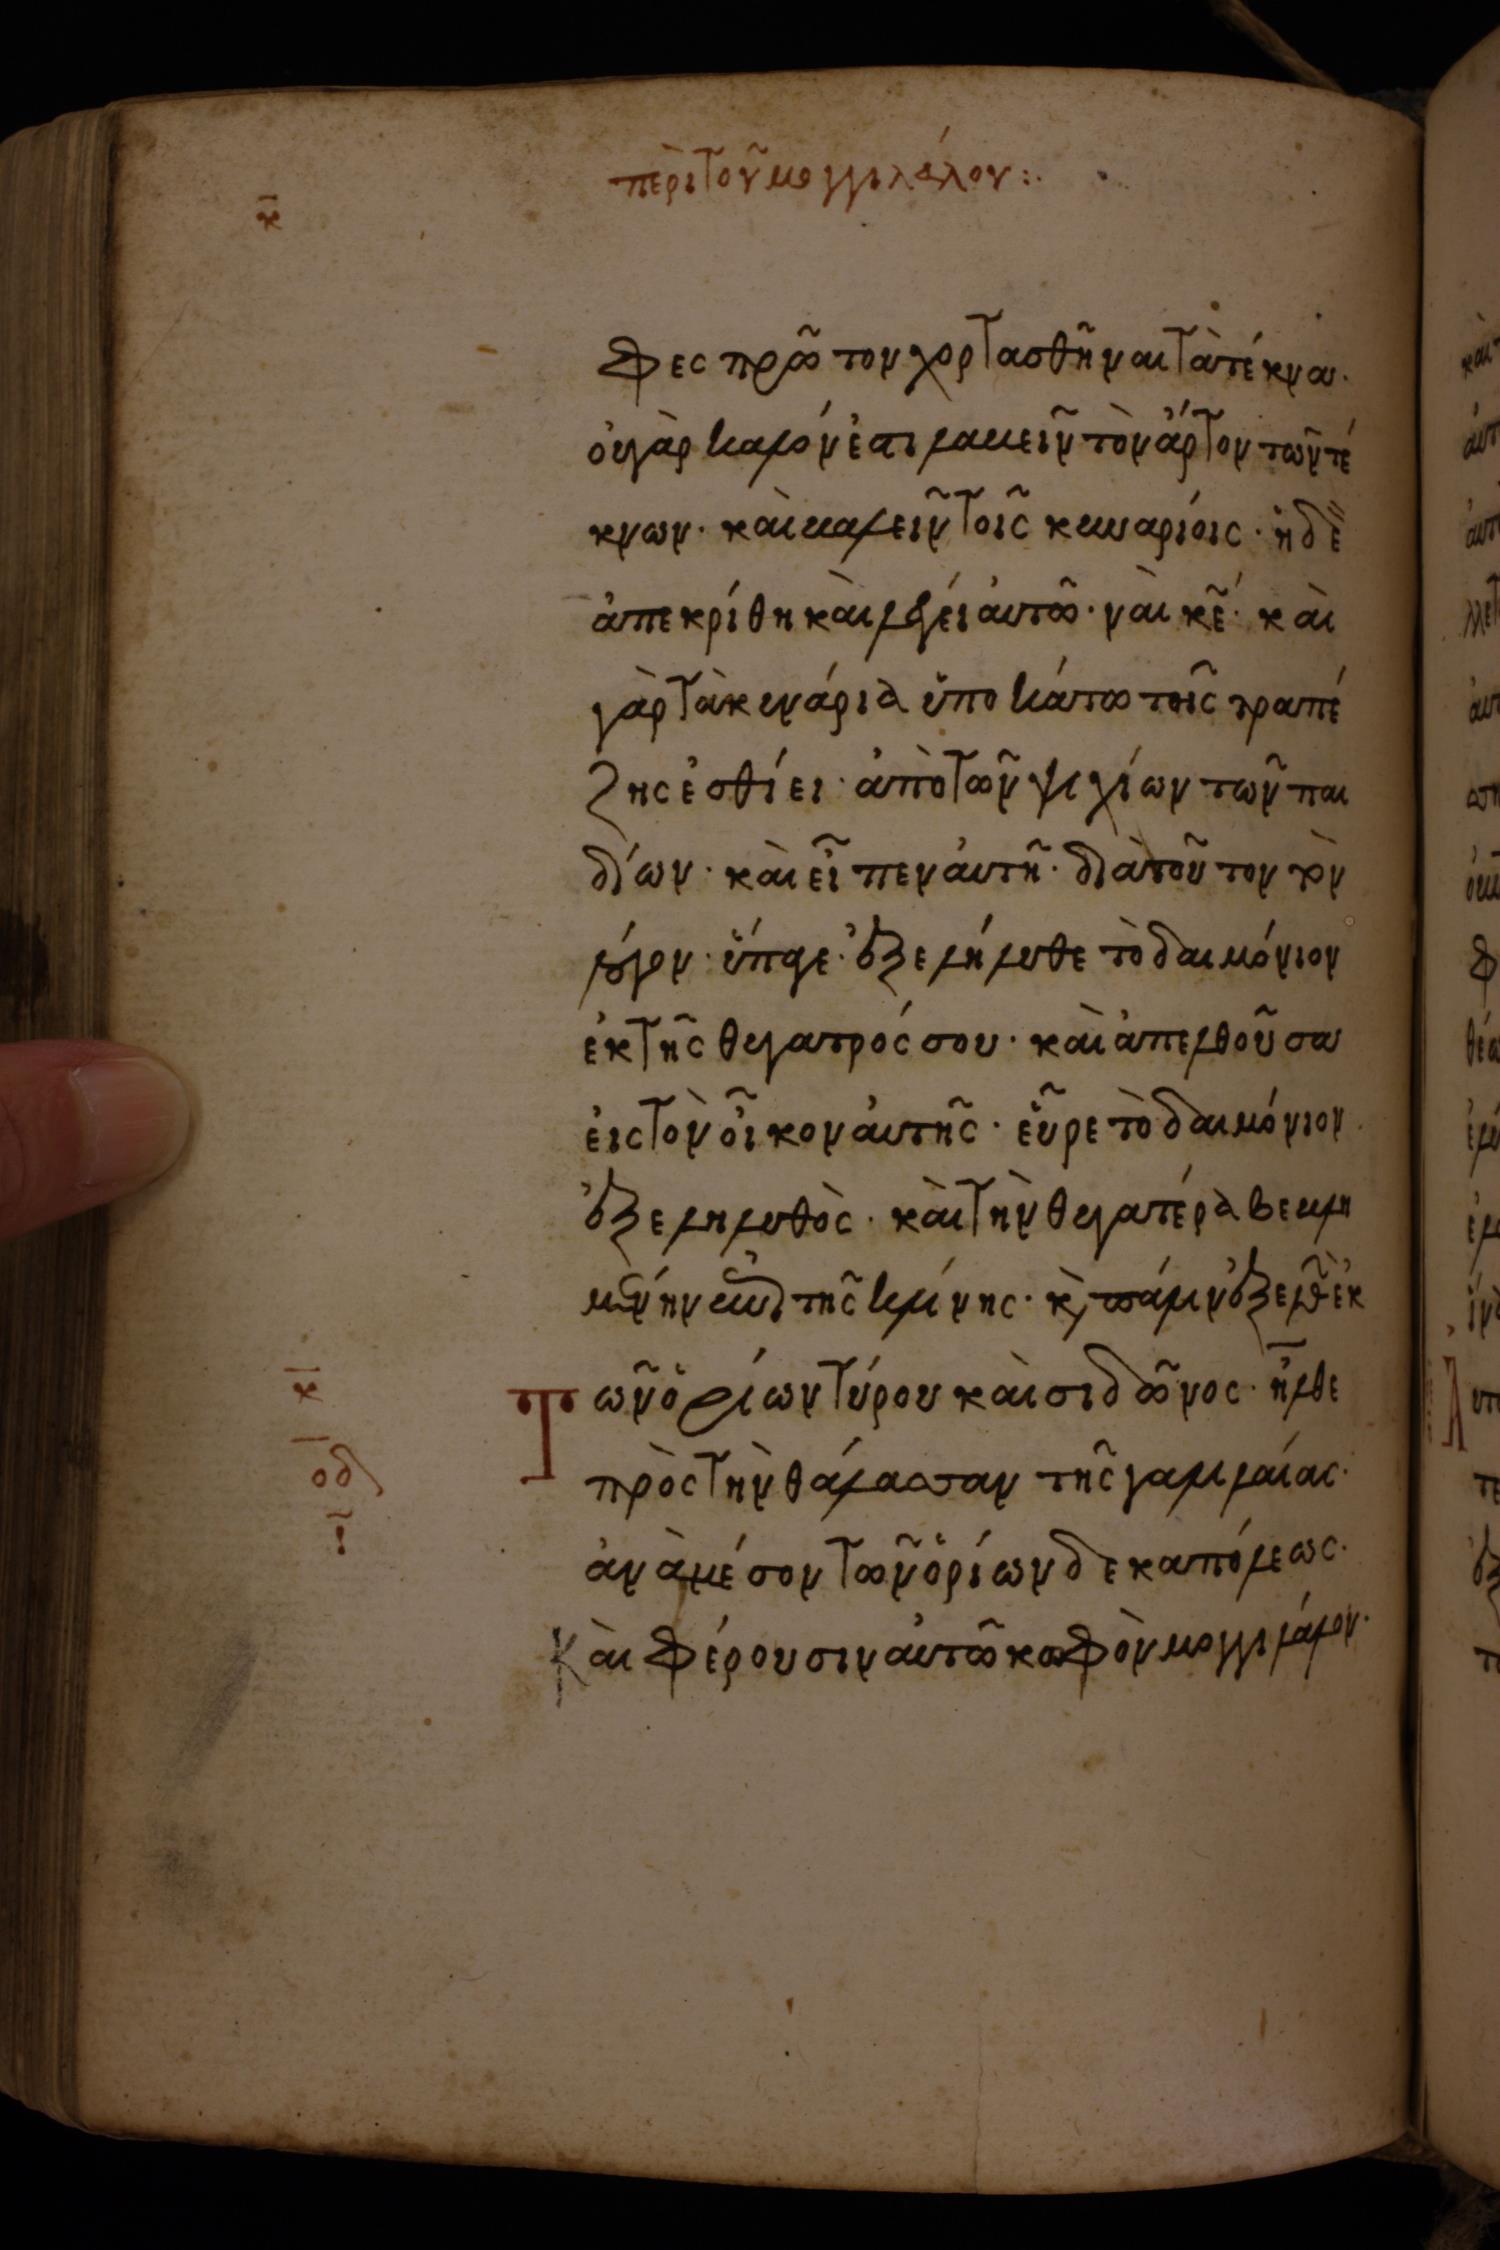 περὶ τοῦ μογγιλάλου:.
κ̅
φες πρῶτον χορτασθῆναι τὰ τέκνα·
οὐ γὰρ καλόν ἐστι λαβεῖν τὸν ἄρτον τῶν τέ
κνων· καὶ βαλεῖν τοῖς κυναρίοις· ἡ δὲ
ἀπεκρίθη καὶ λέγει αὐτῶ· ναὶ κ̅ε̅· καὶ
γὰρ τὰ κυνάρια ὑποκάτω τῆς τραπέ
ζης ἐσθίει· ἀπὸ τῶν ψιχίων τῶν παι
δίων· καὶ εἶπεν αὐτῆ· διὰ τοῦτον τὸν
λόγον· ὕπαγε· ἐξελήλυθε τὸ δαιμόνιον
ἐκ τῆς θυγατρός σου· καὶ ἀπελθοῦσα
εἰς τὸν οἶκον αὐτῆς· εὗρε τὸ δαιμόνιον
ἐξεληλυθὸς· καὶ τὴν θυγατέρα βεβλη
μένην ἐπὶ τῆς κλίνης· κ πάλιν ἐξελθ ἐκ
Τῶν ὁρίων τύρου καὶ σιδῶνος· ἦλθε
πρὸς τὴν θάλασσαν τῆς γαλιλαίας·
ἀνὰ μέσον τῶν ὁρίων δεκαπόλεως·
Καὶ φέρουσιν αὐτῶ κωφὸν μογγιλάλον·
κ̅
οδ
ι